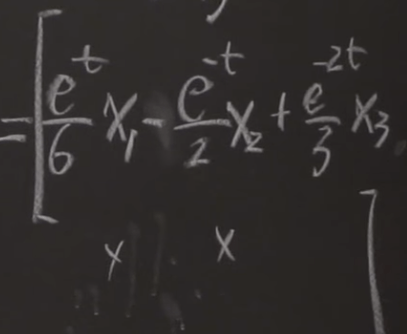 = [ e^t/6 x₁ - e^-t/2 x₂ + e^-2t/3 x₃
x x ]